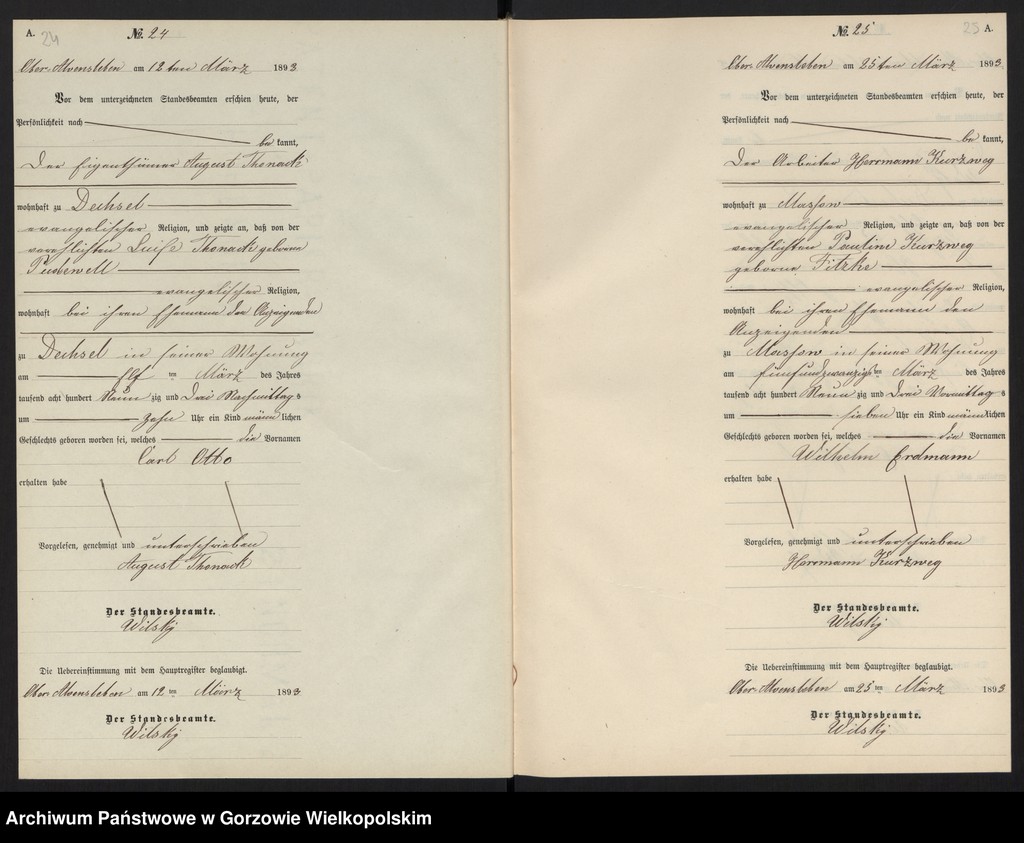 A. 24
№. 24
Ober-Alvensleben am 12ten März 1893
Vor dem unterzeichneten Standesbeamten erschien heute, der
Persönlichkeit nach
be kannt,
Der Eigenthümer August Thonack
wohnhaft zu Dechsel
evangelischer Religion, und zeigte an, daß von der
verehlichten Luise Thonack geborene
Pudewell
evangelischer Religion,
wohnhaft bei ihren Ehemann den Anzeigenden
zu Dechsel in seiner Wohnung
am Elf ten März des Jahres
tausend acht hundert Neun zig und Drei Nachmittag s
um Zehn Uhr ein Kind männ lichen
Geschlechts geboren worden sei, welches die Vornamen
Carl Otto
erhalten habe
Vorgelesen, genehmigt und unterschrieben
August Thonack
Der Standesbeamte.
Wilsky
Die Uebereinstimmung mit dem Hauptregister beglaubigt.
Ober-Alvensleben am 12 ten März 1893
Der Standesbeamte.
Wilsky
№. 25
25 A.
Ober-Alvensleben am 25ten März 1893
Vor dem unterzeichneten Standesbeamten erschien heute, der
Persönlichkeit nach
be kannt,
Der Arbeiter Herrmann Kurzweg
wohnhaft zu Massow
evangelischer Religion, und zeigte an, daß von der
verehlichten Pauline Kurzweg
geborne Fitzke
evangelischer Religion,
wohnhaft bei ihren Ehemann den
Anzeigenden
zu Massow in seiner Wohnung
am fünfundzwanzigs ten März des Jahres
tausend acht hundert Neun zig und Drei Vormittag s
um sieben Uhr ein Kind männ lichen
Geschlechts geboren worden sei, welches die Vornamen
Wilhelm Erdmann
erhalten habe
Vorgelesen, genehmigt und unterschrieben
Herrmann Kurzweg
Der Standesbeamte.
Wilsky
Die Uebereinstimmung mit dem Hauptregister beglaubigt.
Ober-Alvensleben am 25 ten März 1893
Der Standesbeamte.
Wilsky
Archiwum Państwowe w Gorzowie Wielkopolskim